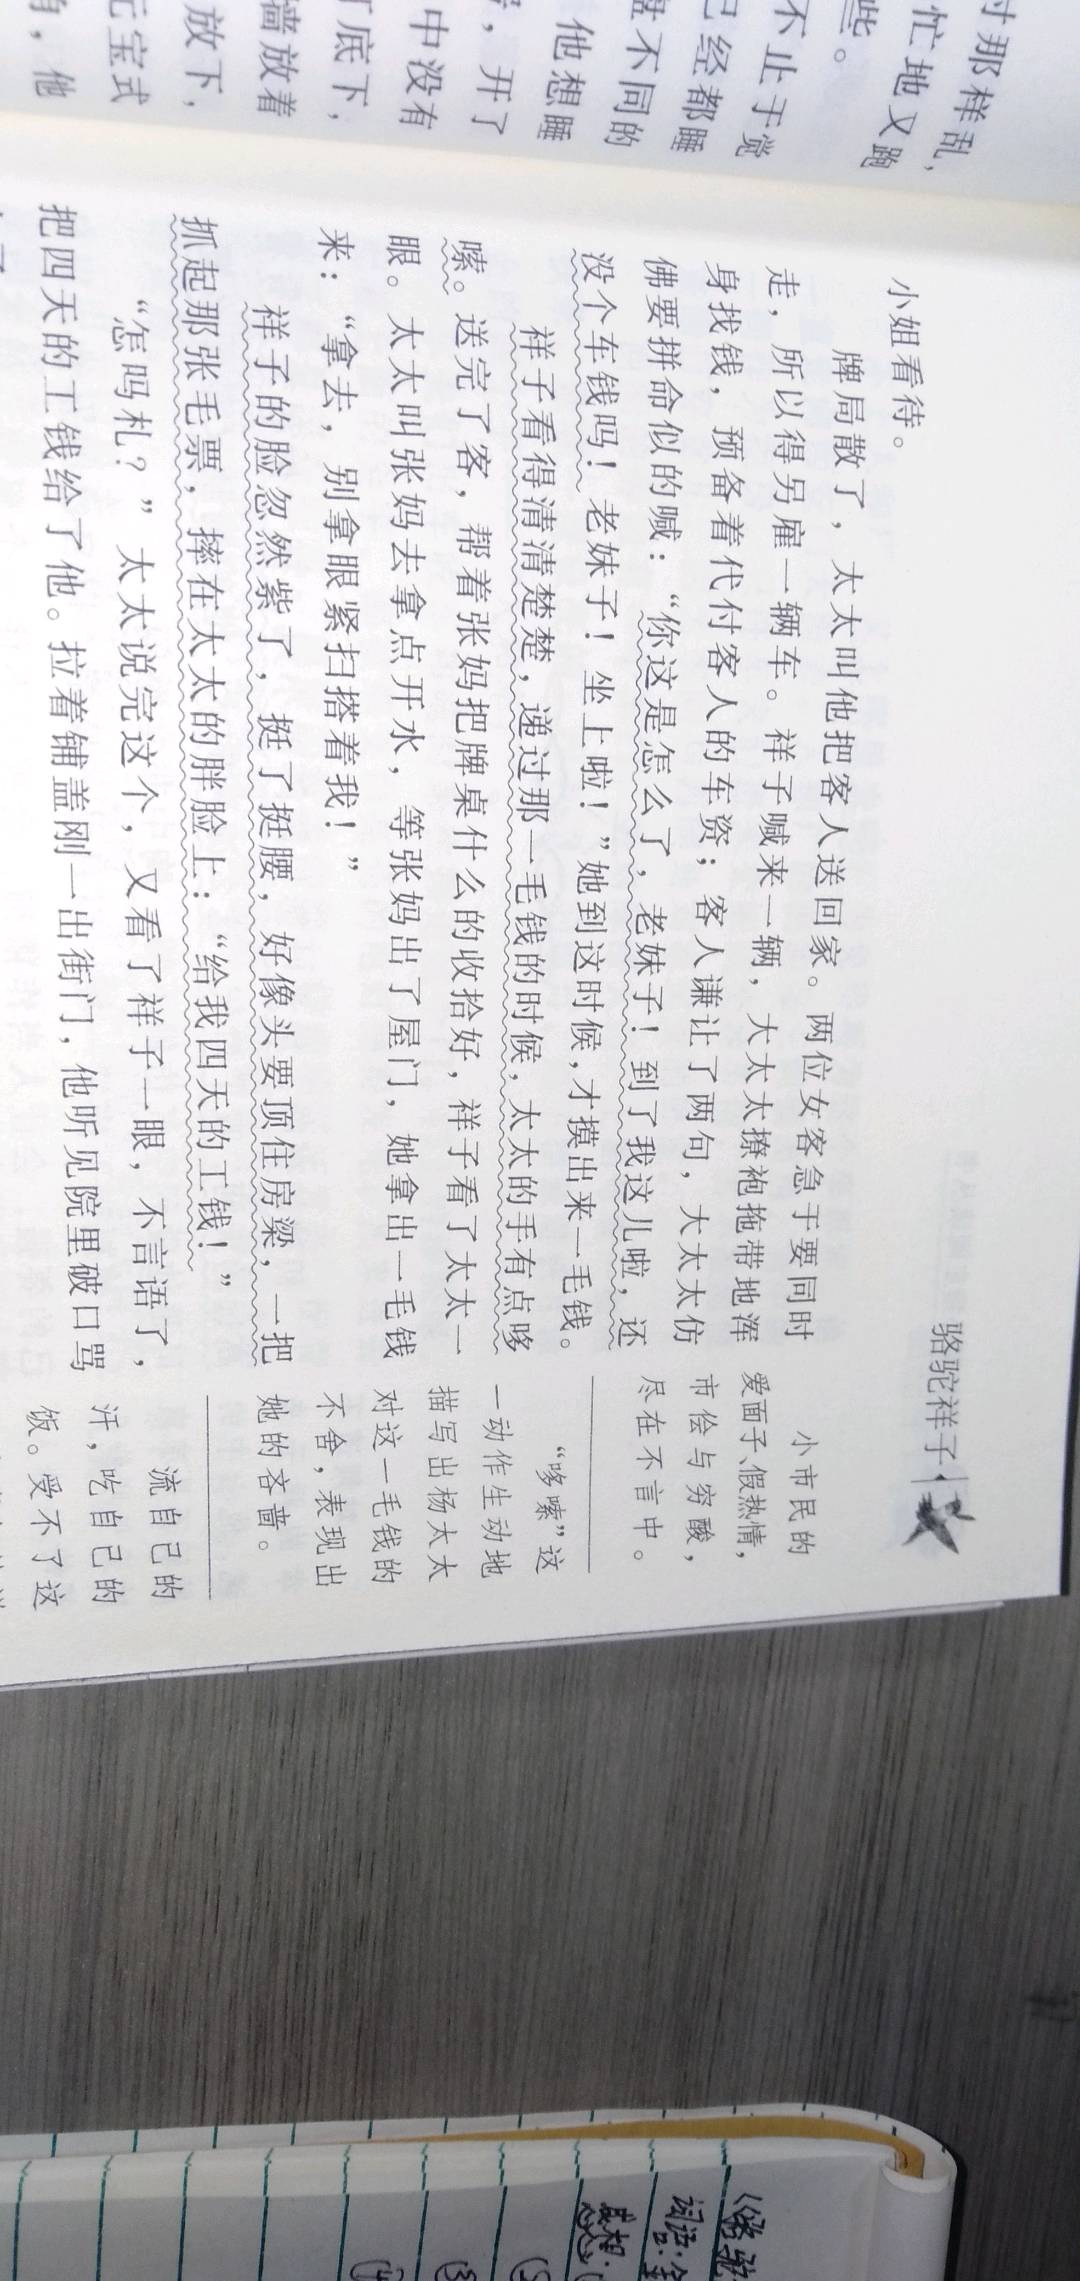 骆驼祥子
小姐看待。
牌局散了，太太叫他把客人送回家。两位女客急于要同时
走，所以得另雇一辆车。祥子喊来一辆，大太太撩袍拖带地浑
身找钱，预备着代付客人的车资；客人谦让了两句，大太太仿
佛要拼命似的喊：“你这是怎么了，老妹子！到了我这儿啦，还
没个车钱吗！老妹子！坐上啦！”她到这时候，才摸出来一毛钱。
祥子看得清清楚楚，递过那一毛钱的时候，太太的手有点哆
嗦。送完了客，帮着张妈把牌桌什么的收拾好，祥子看了太太一
眼。太太叫张妈去拿点开水，等张妈出了屋门，她拿出一毛钱
来：“拿去，别拿眼紧扫搭着我！”
祥子的脸忽然紫了，挺了挺腰，好像头要顶住房梁，一把
抓起那张毛票，摔在太太的胖脸上：“给我四天的工钱！”
“怎吗札？”太太说完这个，又看了祥子一眼，不言语了，
把四天的工钱给了他。拉着铺盖刚一出街门，他听见院里破口骂
小市民的
爱面子、假热情，
市侩与穷酸，
尽在不言中。
“哆嗦”这
一动作生动地
描写出杨太太
对这一毛钱的
不舍，表现出
她的吝啬。
流自己的
汗，吃自己的
饭。受不了这
那样乱，
忙地又跑
些。
不止于觉
已经都睡
不同的
他想睡
，开了
中没有
底下，
墙放着
放下，
元宝式
，他
词语：
感想：